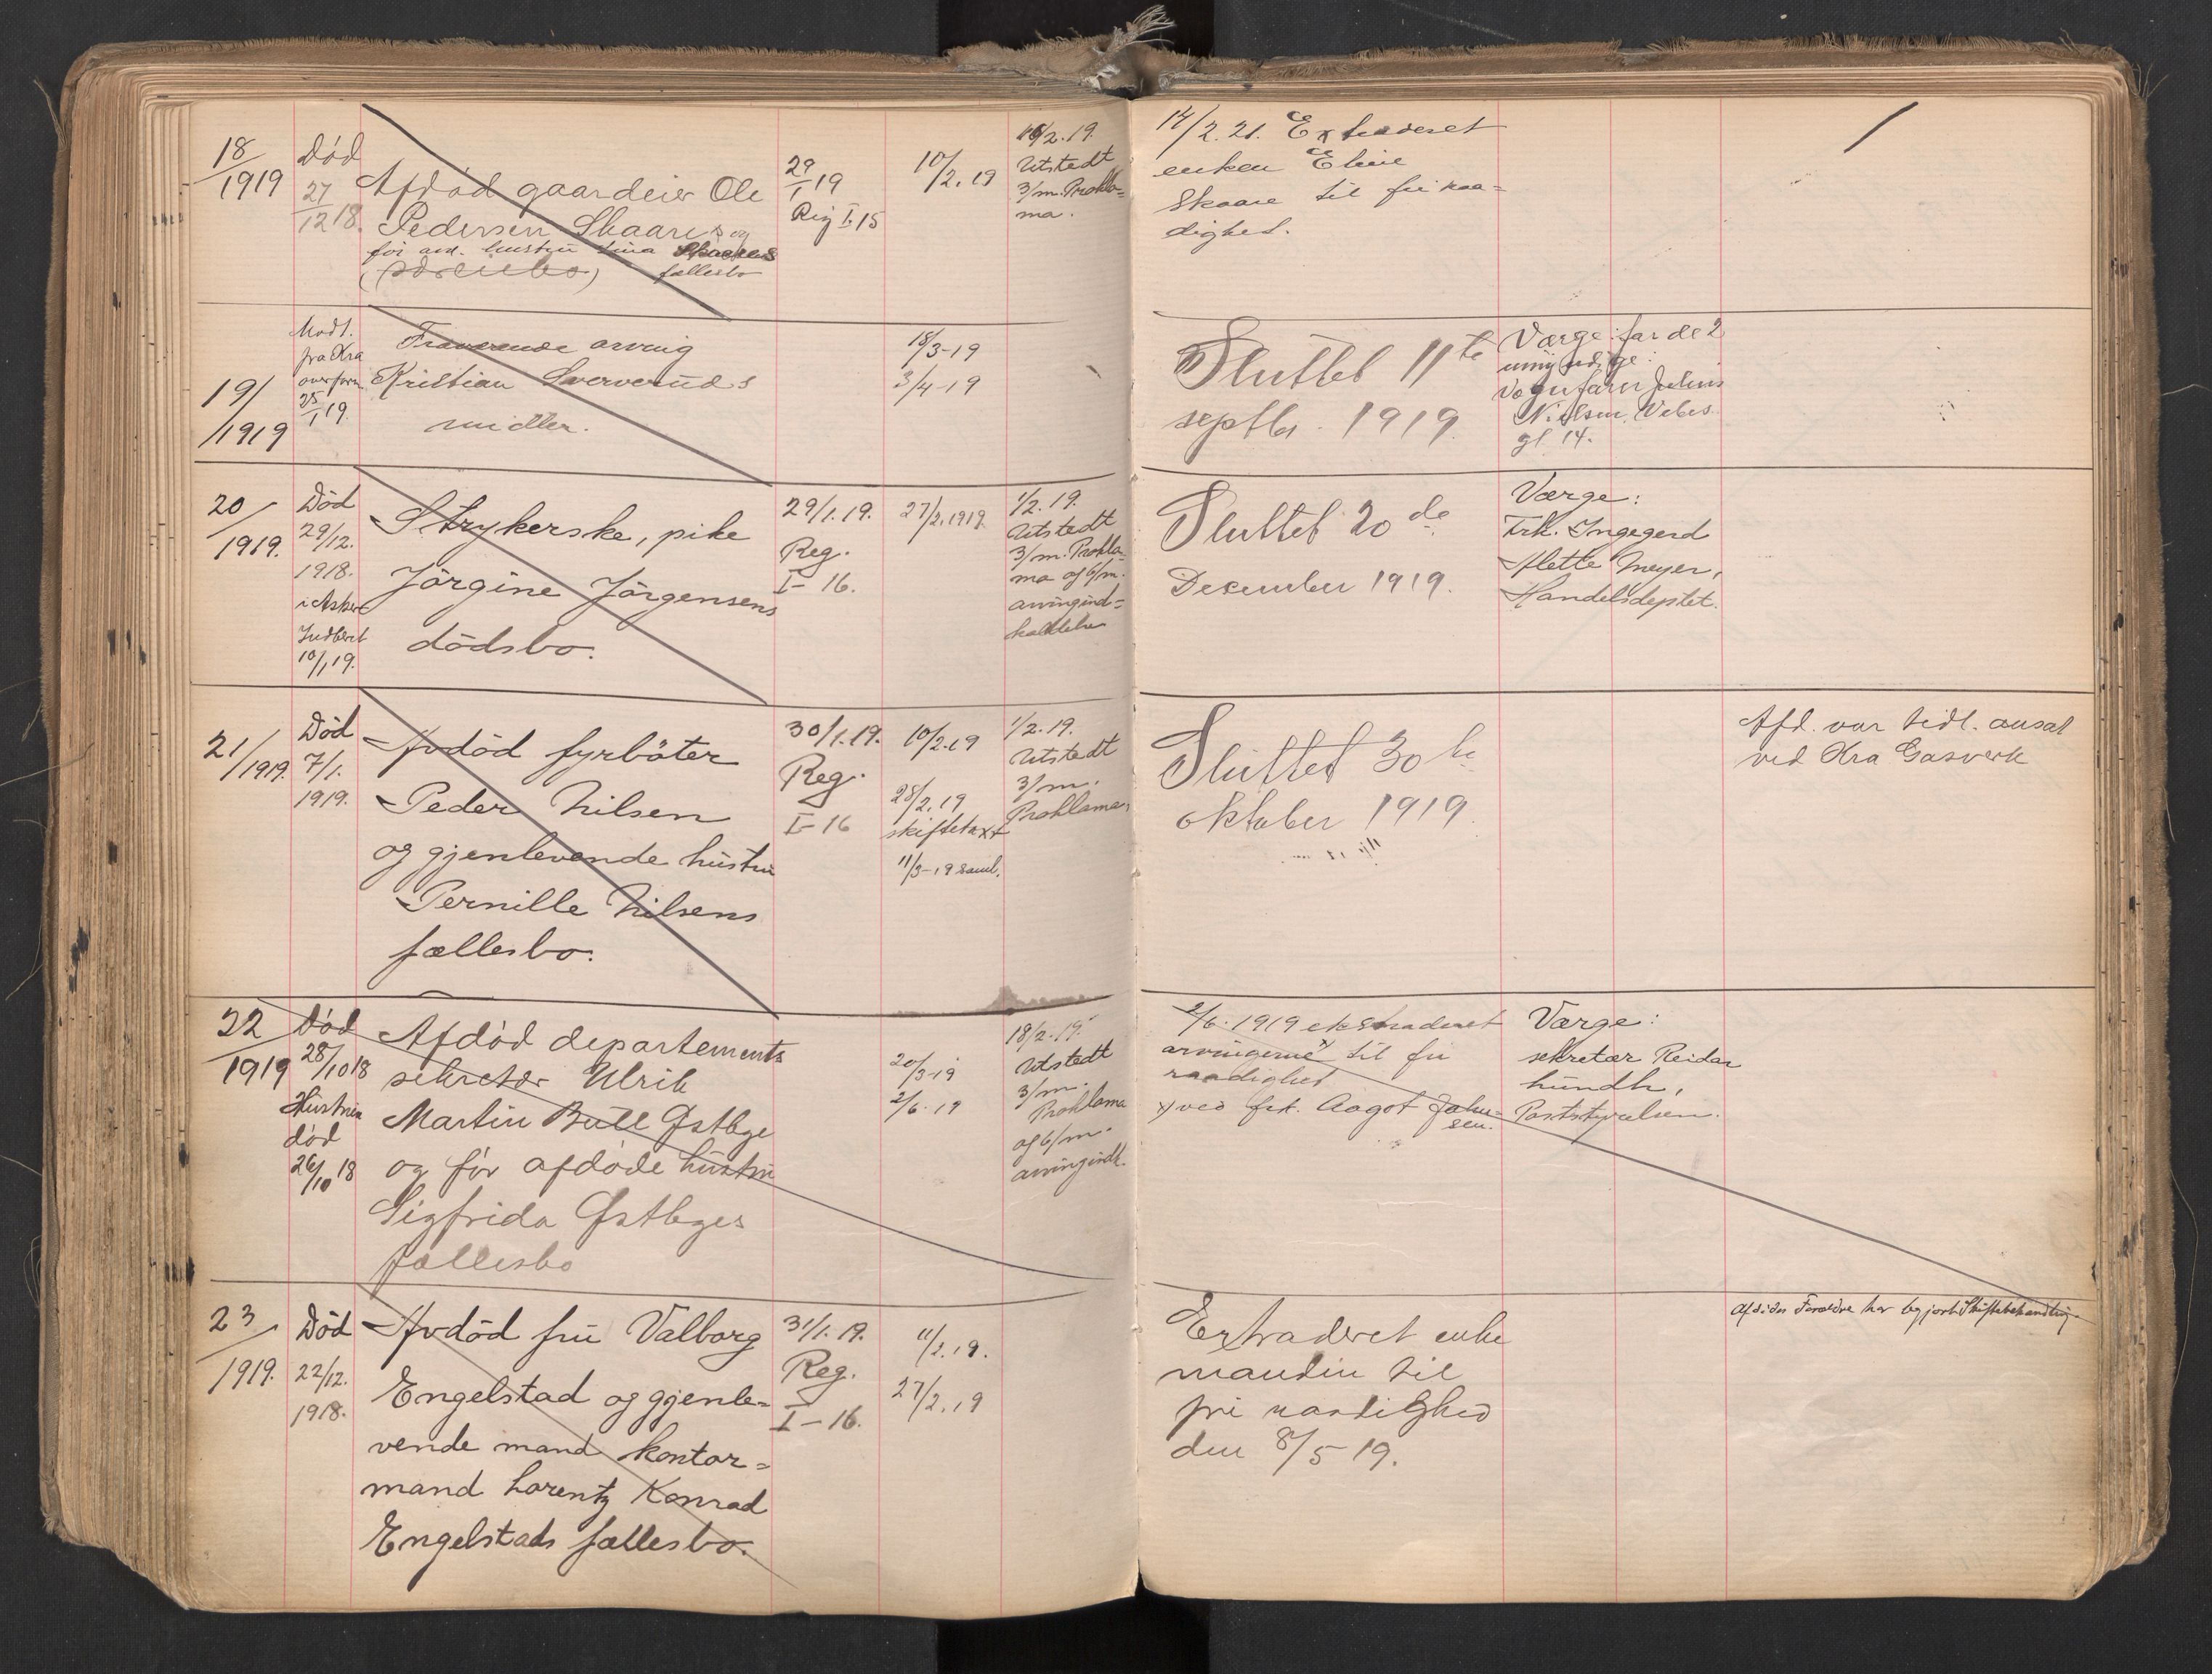 18/1919
Død
27/12 18.
Afdød gaardeier Ole
Pedersen Skaares og
før avd. hustru Lina Skaares
fællesbo
29/1 19
Reg I. 15
10/2. 19
10/2. 19.
Utstedt
3/m. Prokla=
ma.
14/2. 21. Extraderet
enken Eline
Skaare til fri raa=
dighet.
19/1919
Modt.
fra Kra
overform.
25/1 19.
Fraværende arving
Kristian Sververuds
midler.
18/3-19
3/4-19
Sluttet 11te
septbr. 1919.
Værge for de 2
umyndige:
vognfører Julius
Nielsen, Vibes
gt. 14.
20/1919.
Død
29/12.
1918.
i Asker
Indberet
10/1 19.
Strykerske, pike
Jörgine Jörgensens
dödsbo.
29/1. 19.
Reg.
I - 16.
27/2. 1919
1/2. 19.
Utstedt
3/m. Prokla=
ma og 6/m.
arvingind=
kaldelse
Sluttet 20de
December 1919.
Værge:
Frk. Ingegerd
Mette Meyer,
Handelsdeptet.
21/1919.
Død
7/1.
1919.
Avdöd fyrböter
Peder Nilsen
og gjenlevende hustru
Pernille Nilsens
fællesbo.
30/1. 19.
Reg.
I - 16
10/2. 19
28/2. 19
skiftetaxt
11/3-19 saml.
1/2. 19.
Utstedt
3/m.
Proklama.
Sluttet 30te
oktober 1919.
Afd. var tidl. ansat
ved Kra Gasverk
22/1919
Död
28/10 18
Hustruen
död
26/10 18
Afdöd departements
sekretær Ulrik
Martin Bull Østbye
og før afdøde hustru
Sigfrida Østbyes
fællesbo
20/3-19
2/6. 19
18/2. 19.
Utstedt
3/m.
Proklama
og 6/m.
arvingindk.
2/6. 1919 ekstraderet
arvingerne x til fri
raadighet
x) ved frk. Aagot John=
sen.
Værge:
sekretær Reidar
Lundh,
Poststyrelsen.
23/1919.
Død
22/12.
1918.
Avdöd fru Valborg
Engelstad og gjenle=
vende mand kontor=
mand Lorentz Konrad
Engelstads fællesbo.
31/1. 19.
Reg.
I - 16.
11/2. 19.
27/2. 19
Extraderet enke
manden til
fri raadighed
den 8/5-19.
Afdødes Forældre har begjært Skiftebehandling.